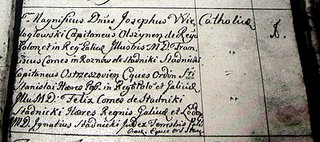 Magnificus Dnus Josephus Wie Catholicæ
logłowski Capitaneus Olszynen de Regi
Polon, et in Reg Galiciæ Illustris M.D. Fran
ciscus Comes in Roznów de Stadniki Stadnicki
Capitaneus Ostrzeszovien Eques Ordin Sti
Stanislai Hæres in Regno Polo et Galiciæ
Illus M.D. Felix Comes de Stadniki
Stadnicki Hæres Regnis Galiciæ et
M.D. Ignatius Stadnicki Judex Terrestris
Eques ord